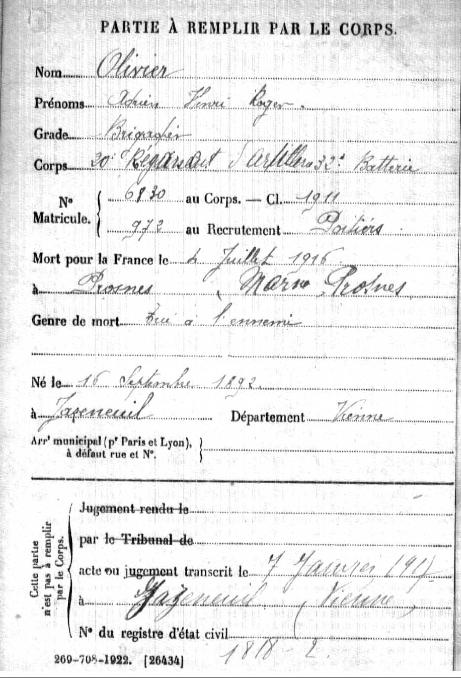 PARTIE À REMPLIR PAR LE CORPS.
Nom Olivier
Prénoms Adrien Henri Roger.
Grade Brigadier
Corps 20e Régiment d'artillerie 32e Batterie
N° Matricule. { 6830 au Corps. — Cl. 1911
972 au Recrutement Poitiers
Mort pour la France le 4 Juillet 1916
à Prosnes (Marne Prosnes
Genre de mort Tué à l'ennemi
Né le 16 Septembre 1892
à Jazeneuil Département Vienne
Arrt municipal (pr Paris et Lyon), à défaut rue et N°. }
Cette partie n'est pas à remplir par le Corps. {
Jugement rendu le
par le Tribunal de
acte ou jugement transcrit le 7 Janvier 1917
à Jazeneuil (Vienne)
N° du registre d'état civil
269-708-1922. [26434]